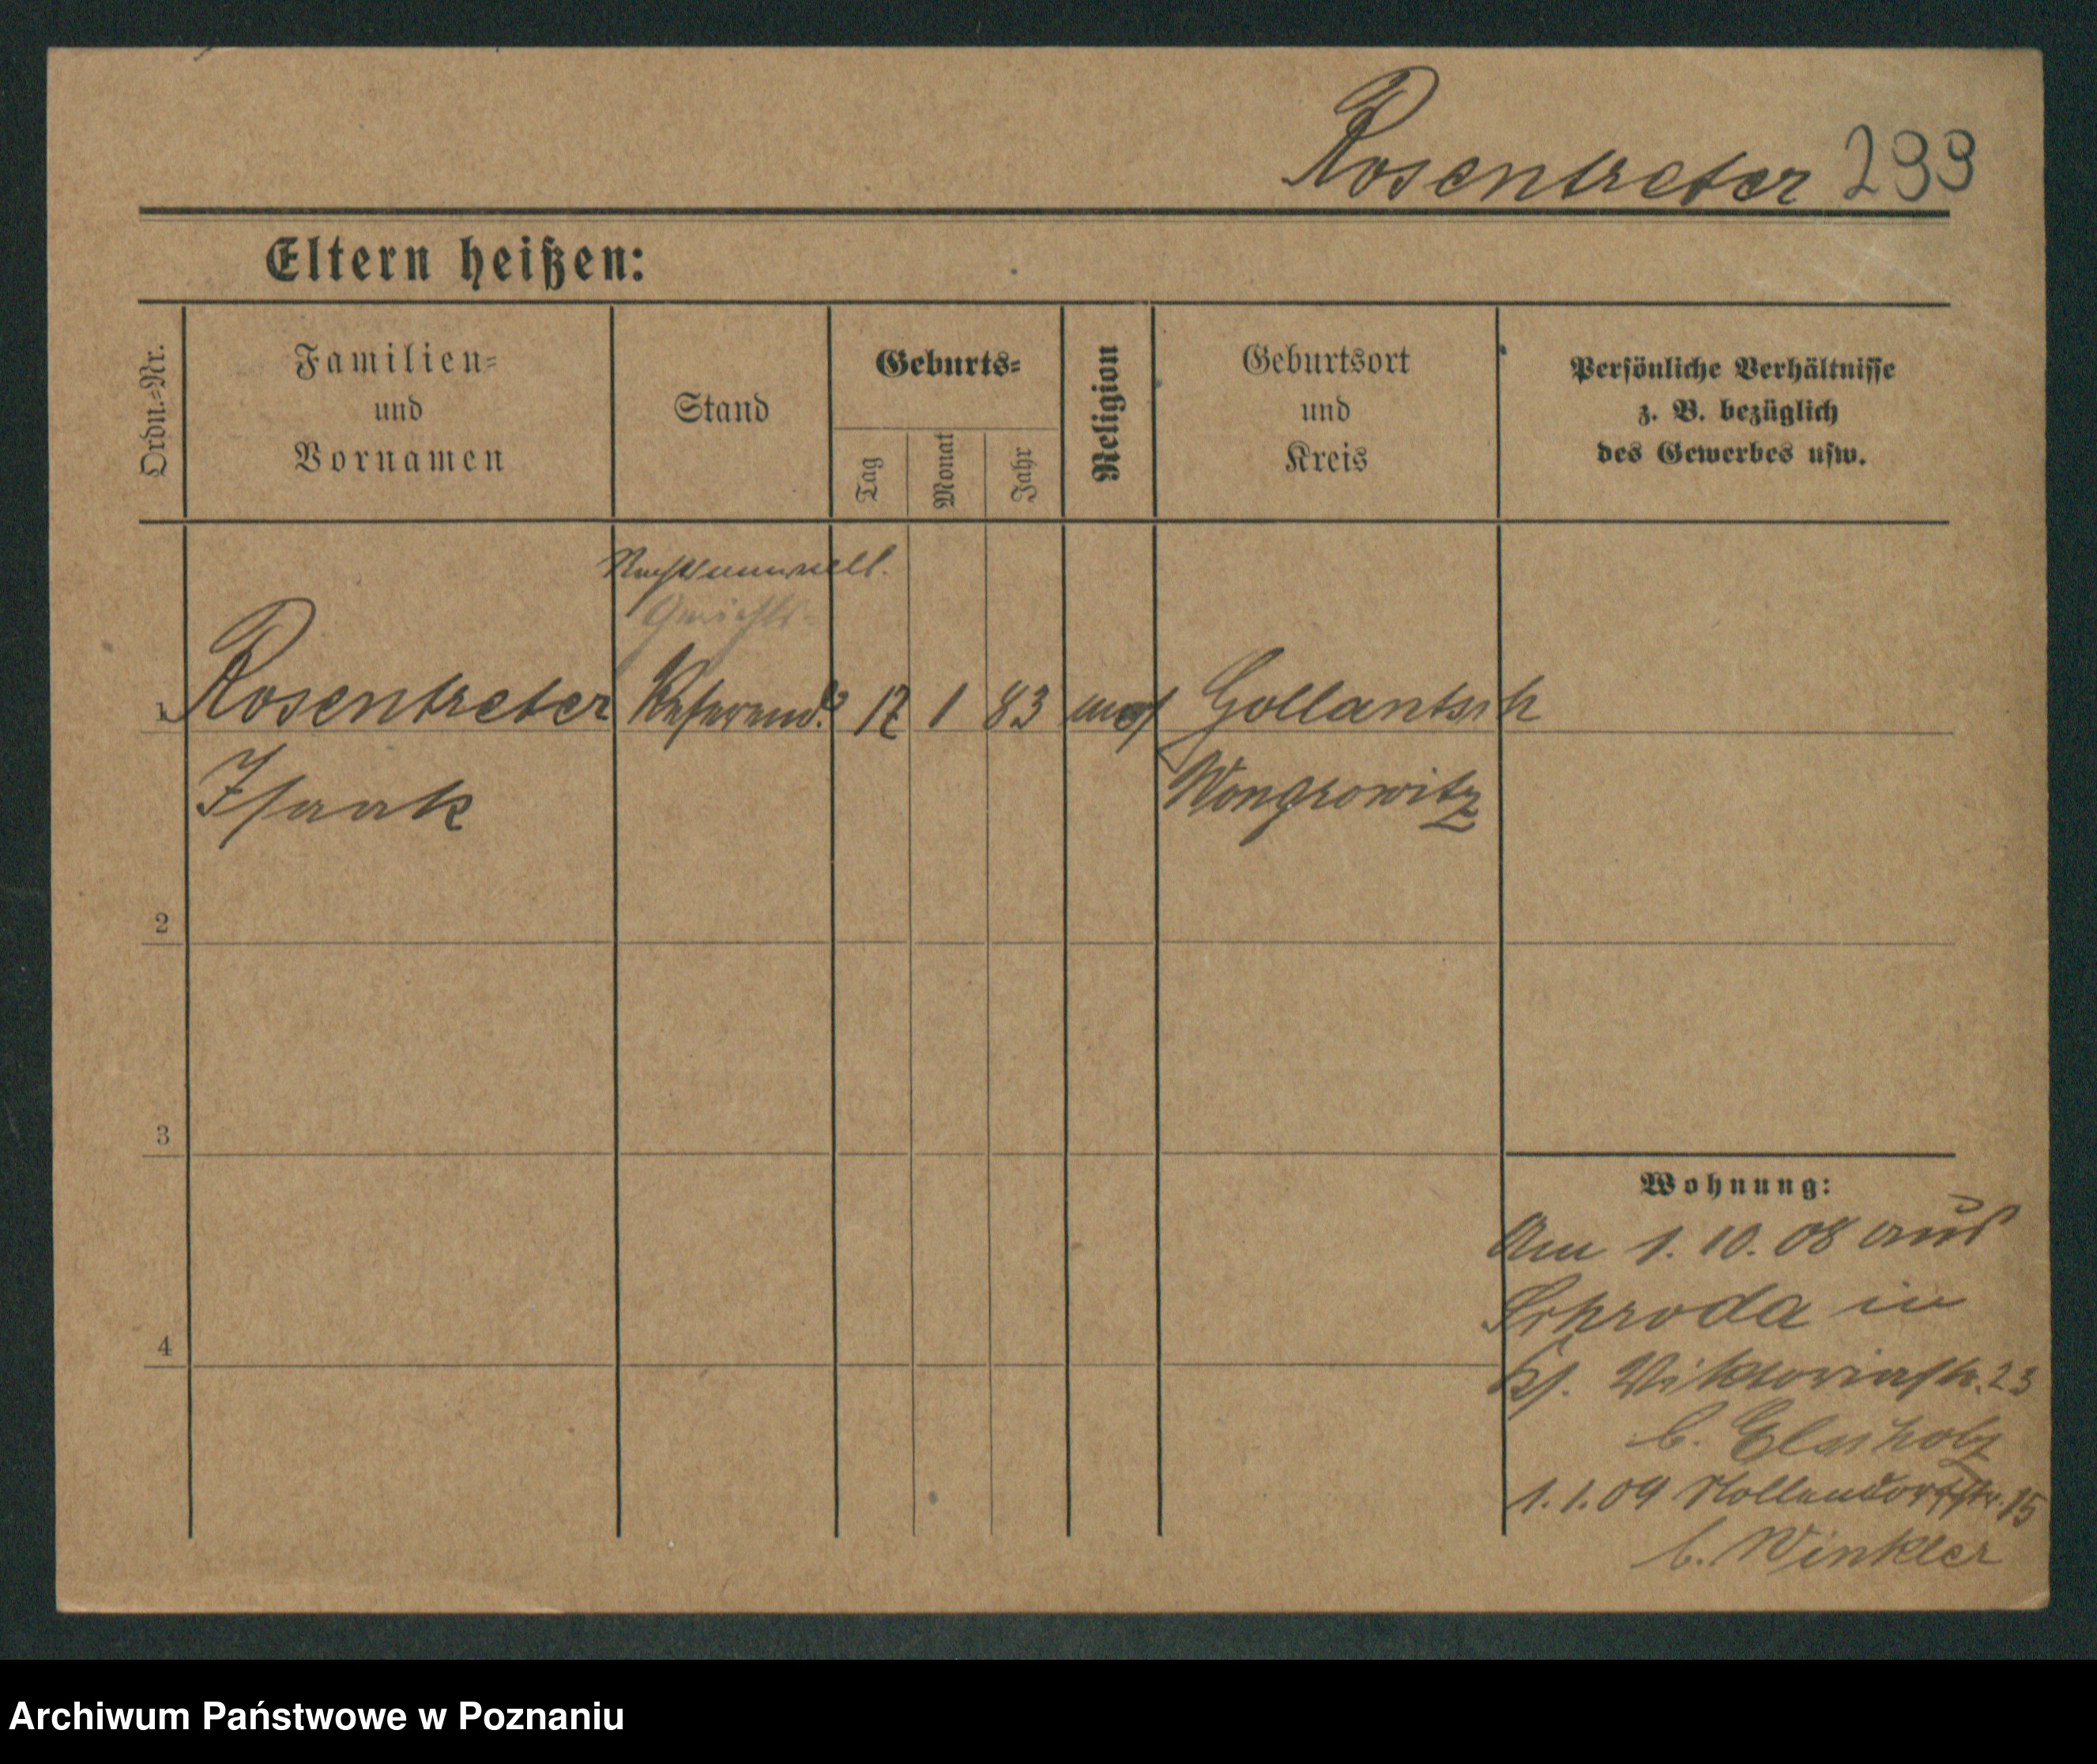 Rosentreter 299
Eltern heißen:
Ordn.-Nr.
Familien-
und
Vornamen
Stand
Geburts-
Tag
Monat
Jahr
Religion
Geburtsort
und
Kreis
Persönliche Verhältnisse
z. B. bezüglich
des Gewerbes usw.
Rechtsanwalt.
Gerichts-
1 Rosentreter Referend. 17 1 83 mos Gollantsch
Isaak Wongrowitz
2
3
4
Wohnung:
Am 1. 10. 08 aus
Schroda in
Viktoriastr. 23
b. Elsholz
1. 1. 09 Nollendorfstr. 15
b. Winkler
Archiwum Państwowe w Poznaniu